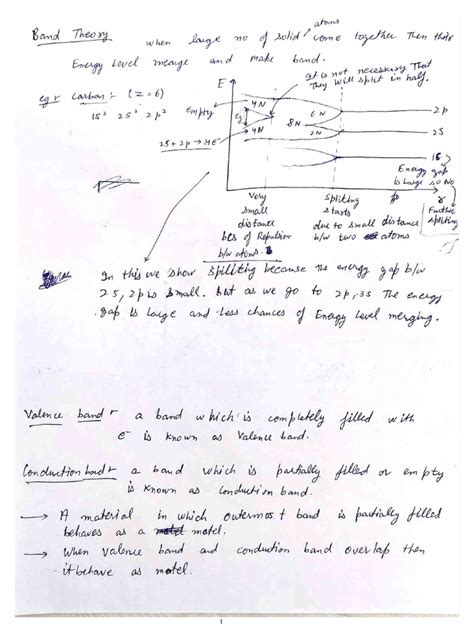 Band Theory when large no of solid atoms come together then their
Energy Level mearge and make band.
eg:- Carbon :- (Z=6)
1S² 2S² 2p²
It is not necessary that
They will split in half.
E
empty
4N
Eg
4N
6N
8N
2N
2p
2S
1S
2S+2p → 4e⁻
Energy gap
is large so No
r
Further
spliting
Very
small
distance
bcs of Repulsion
b/w atoms.
Spliting
starts
due to small distance
b/w two atoms
In this we show spliting because the energy gap b/w
2S, 2p is small. but as we go to 2p, 3S The energy
gap is large and less chances of Energy Level merging.
Valence band:- a band which is completely filled with
e⁻ is known as Valence band.
Conduction band:- a band which is partially filled or empty
is known as conduction band.
→ A material in which outermost band is partially filled
behaves as a metel.
→ When valence band and conduction band overlap then
it behave as metel.
1